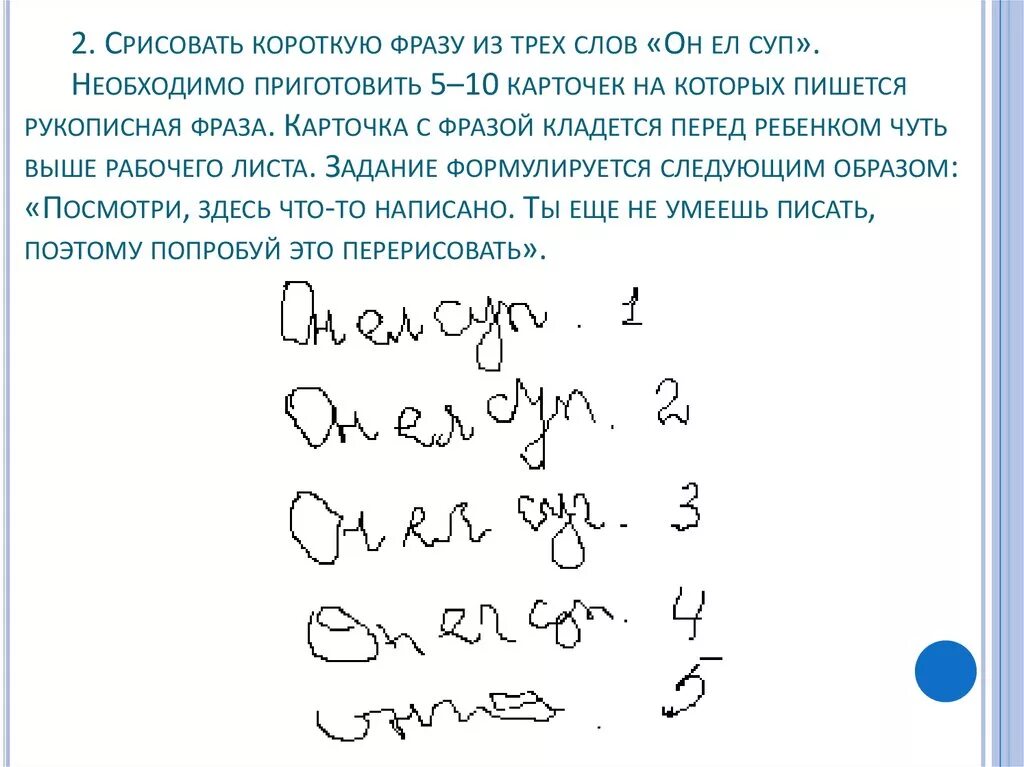 2. Срисовать короткую фразу из трех слов «Он ел суп».
Необходимо приготовить 5–10 карточек на которых пишется
рукописная фраза. Карточка с фразой кладется перед ребенком чуть
выше рабочего листа. Задание формулируется следующим образом:
«Посмотри, здесь что-то написано. Ты еще не умеешь писать,
поэтому попробуй это перерисовать».
Он ел суп. 1
Он ел суп. 2
Он ел суп. 3
Он ел суп. 4
5